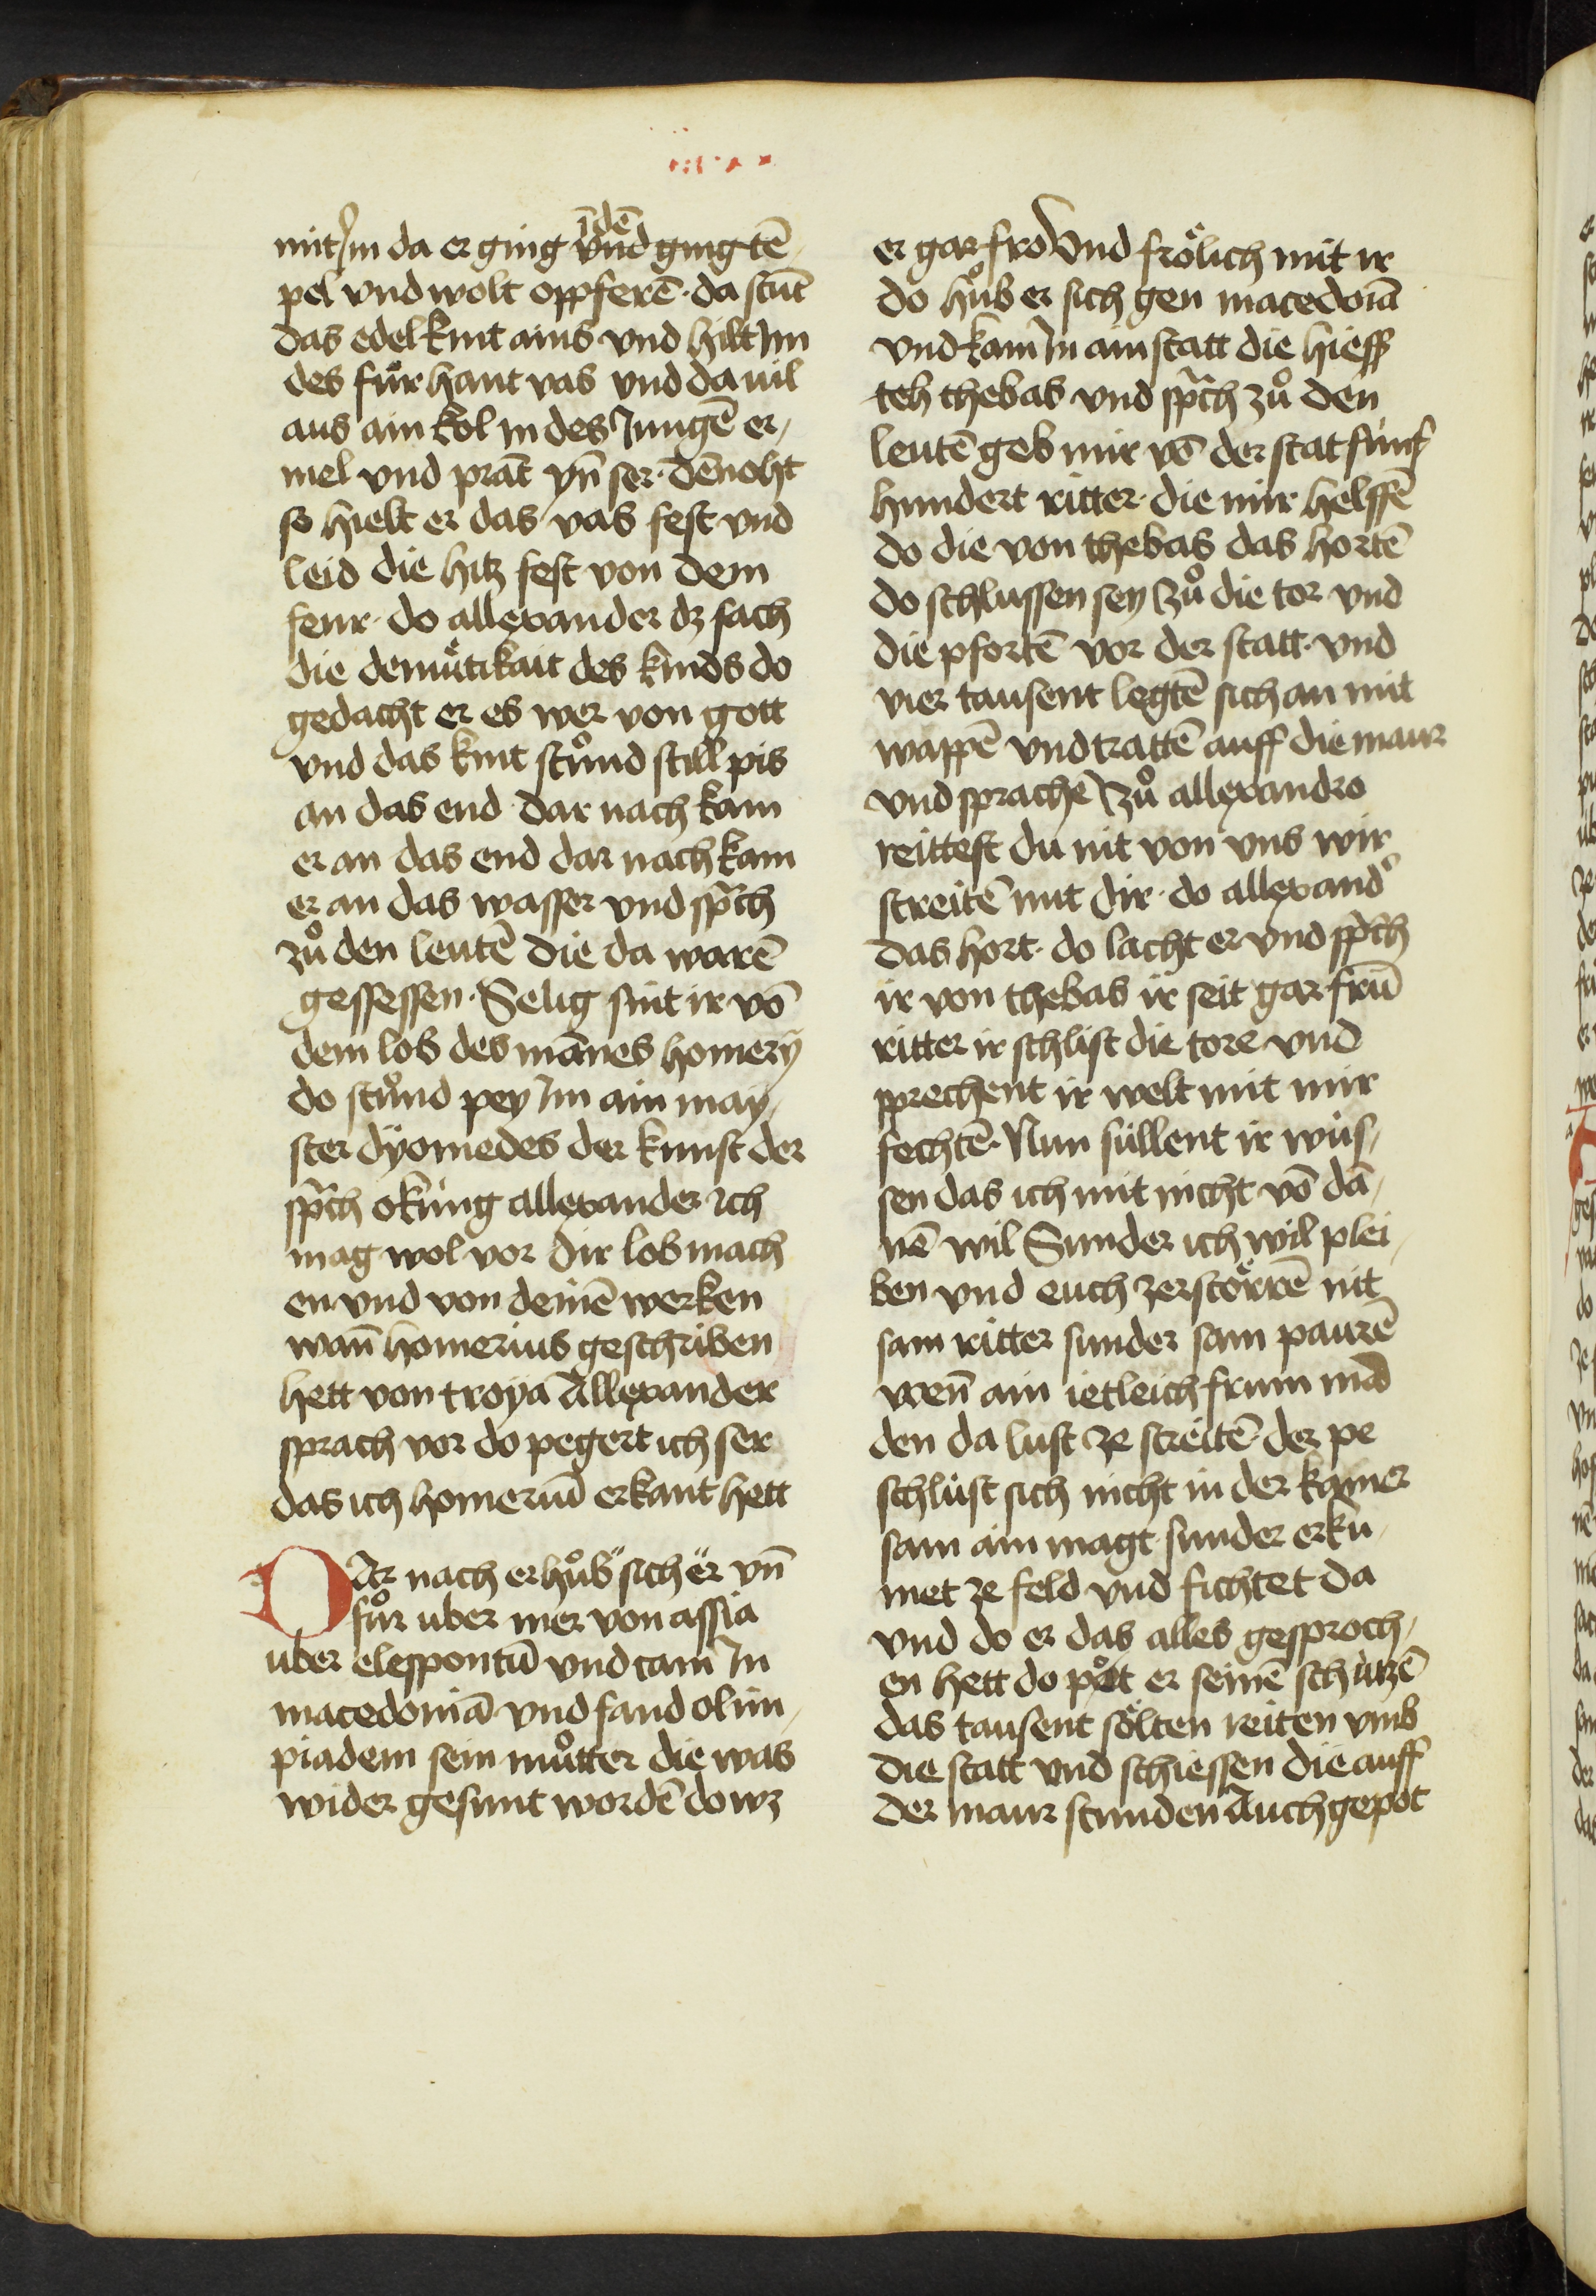 mit im da er ging vnd ging tē
īdē
pel vnd wolt oppferē · da stūt
das edel kint ains vnd hilt Im
des fuͤr hant vas vnd da uil
aus ain kol in des Jungē er,
mel vnd prāt yn̄ ser · dēnoht
so hielt er das vas fest vnd
leid die hitz fest von dem
feur · do allexander dz sach
die demuͤtikait des kinds do
gedacht er es wer von gott
vnd das kint stuͦnd still pis
an das end · dar nach kam
er an das end dar nach kam
er an das wasser vnd sp̄ch
zuͦ den leutē die da warē
gessessen · Selig sint ir vō
dem lob des mānes homerÿ
do stuͦnd pey Im ain may,
ster dÿomedes der kunst der
sp̄ch o kūng allexander ich
mag wol vor dir lob mach
en vnd von deinē werken
wan̄ homerius geschriben
hett von troya Allexander
sprach vor do pegert ich ser
das ich homeriū erkant hett
DAr nach erhuͦb sich er vn̄
fuͦr uber mer von assia
uber elesspontū vnd cam In
macedoniā vnd fand olim,
piadem sein muͦtter die was
wider gesunt wordē do wz
er gar fro Vnd froͤlich mit ir
do huͦb er sich gen macedoiā
vnd kam In ain statt die hiess
teh thebas vnd sp̄ch zuͦ den
leutē geb mir vō der stat fünf
hundert ritter · die mir helffē
do die von thebas das hortē
do schlussen sey zuͦ die tor vnd
die pfortē vor der statt · vnd
vier tausent legtē sich an mit
wappē vnd trattē auff die maur
vnd sprachē zuͦ allexandro
reittest du nit von vns wir
streitē mit dir · do allexand᷑
das hort · do lacht er vnd sp̄ch
ir von thebas ir seit gar frū
ritter ir schlist die tore vnd
sprechent ir welt mit mir
fechtē · Nun süllent ir wüs,
sen das ich mit nicht vō dā,
nē wil Sunder ich wil plei,
ben vnd euch zerstoͤrrē nit
sam ritter sunder sam paurē
wen̄ ain ietleich frum mā
den da lust ze streitē · der pe
schlüst sich nicht in der kamer
sam ain magt sunder er kū,
met ze feld vnd fichtet da
vnd do er das alles gesproch,
en hett do pot er seinē schützē
das tausent soͤlten reiten vmb
die statt vnd schiessen die auff
der maur stunden Auch gepot